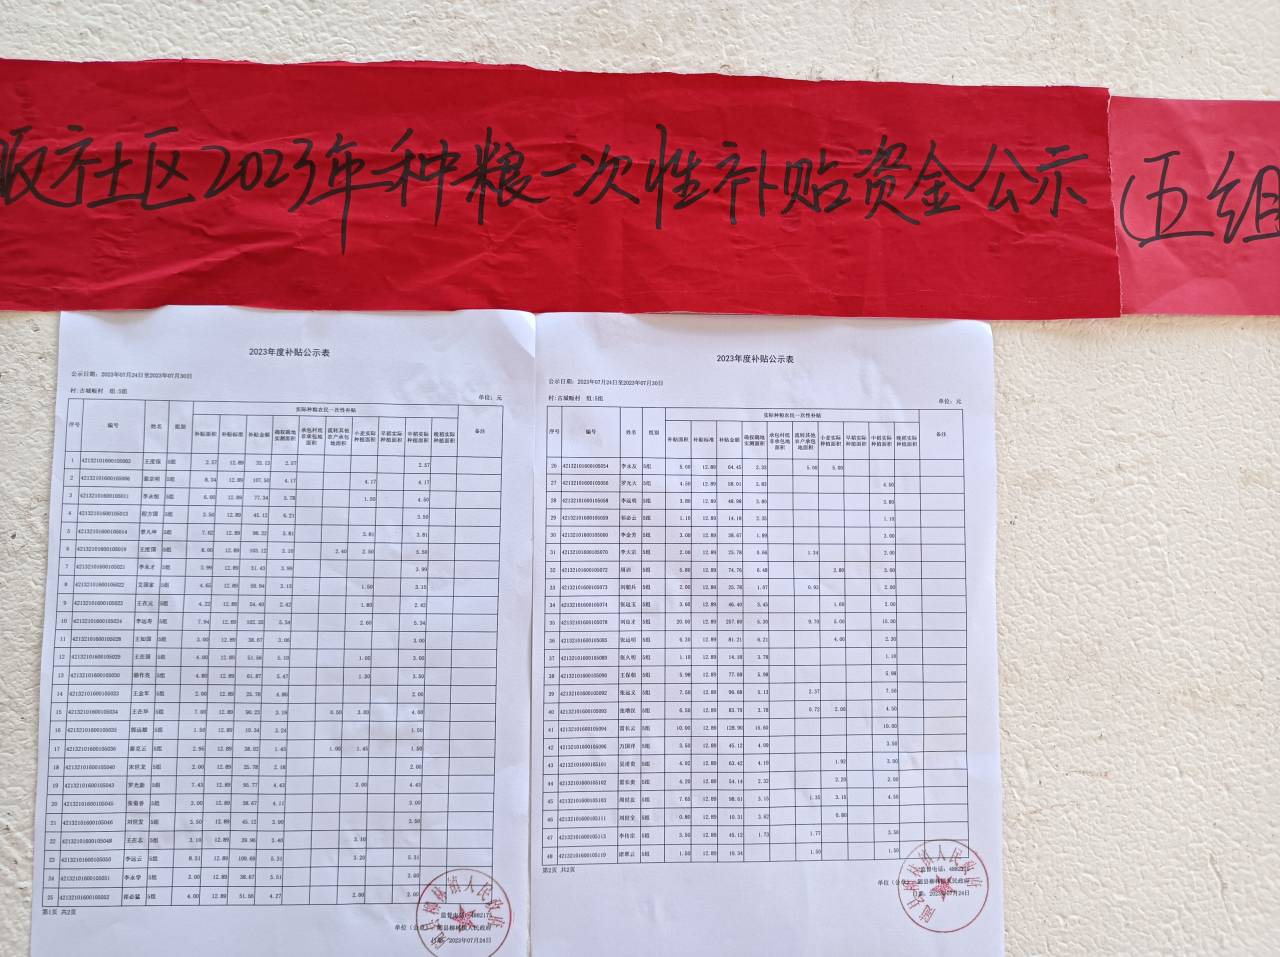 畈社区2023年种粮一次性补贴资金公示
(五组
2023年度补贴公示表
公示日期：2023年07月24日至2023年07月30日
村:古城畈村 组:5组
单位：元
序号 编号 姓名 组别 实际种粮农民一次性补贴 备注
补贴面积 补贴标准 补贴金额 确权确地实测面积 承包村组非承包地面积 流转其他农户承包地面积 小麦实际种植面积 早稻实际种植面积 中稻实际种植面积 晚稻实际种植面积
1 42132101600105003 5组 2.57 12.89 33.13 2.57 2.57
2 5组 8.34 12.89 107.50 4.17 4.17 4.17
3 42132101600105011 李永恒 5组 6.00 12.89 77.34 3.78 1.50 4.50
4 42132101600105013 5组 3.50 12.89 45.12 6.21 3.50
5 42132101600105014 5组 7.62 12.89 98.22 3.81 3.81 3.81
6 5组 8.00 12.89 103.12 2.40 2.50 5.50
7 42132101600105021 李永才 5组 3.99 12.89 51.43 3.99 3.99
8 42132101600105022 5组 4.65 12.89 59.94 3.15 1.50 3.15
9 42132101600105023 王在元 5组 4.22 12.89 54.40 2.42 1.80 2.42
10 李远寿 5组 7.94 12.89 102.35 5.34 2.60 5.34
11 42132101600105028 王如国 5组 3.00 12.89 38.67 3.00
12 42132101600105029 5组 4.00 12.89 51.56 1.00 3.00
13 42132101600105030 5组 4.80 12.89 61.87 5.47 1.30 3.50
14 42132101600105033 王金军 5组 2.00 12.89 25.78 2.00
15 42132101600105034 王在华 5组 7.00 12.89 90.23 3.19 3.00
16 42132101600105035 5组 1.50 12.89 19.34 3.24 1.50
17 42132101600105036 5组 2.95 12.89 38.02 1.45 1.00 1.45 1.50
18 42132101600105040 宋世龙 5组 2.00 12.89 25.78 2.00
19 42132101600105043 5组 7.43 12.89 95.77 4.43 3.00 4.43
20 42132101600105045 张菊香 5组 3.00 12.89 38.67 4.11 3.00
21 42132101600105046 刘世发 5组 3.50 12.89 45.12 3.50
22 42132101600105048 王在志 5组 3.10 12.89 39.96 3.10
23 42132101600105050 李远云 5组 8.51 12.89 109.69 5.31 3.20 5.31
24 42132101600105051 李永学 5组 3.00 12.89 38.67 5.51 3.00
25 42132101600105052 5组 4.00 12.89 51.56 4.27 2.00 2.00
第1页 共2页
监督电话：4802173
单位（公章）：随县柳林镇人民政府
日期：2023年07月24日
随县柳林镇人民政府
2023年度补贴公示表
公示日期：2023年07月24日至2023年07月30日
村:古城畈村 组:5组
单位：元
序号 编号 姓名 组别 实际种粮农民一次性补贴 备注
补贴面积 补贴标准 补贴金额 确权确地实测面积 承包村组非承包地面积 流转其他农户承包地面积 小麦实际种植面积 早稻实际种植面积 中稻实际种植面积 晚稻实际种植面积
26 42132101600105054 李永友 5组 5.00 12.89 64.45 2.33 5.00 5.00
27 42132101600105056 罗光大 5组 4.50 12.89 58.01 4.50
28 42132101600105058 李远明 5组 3.80 12.89 48.98 3.80 3.80
29 42132101600105059 5组 1.10 12.89 14.18 2.35 1.10
30 42132101600105060 李金芳 5组 3.00 12.89 38.67 1.89 3.00
31 42132101600105070 李大宗 5组 2.00 12.89 25.78 0.66 1.34 2.00
32 42132101600105072 周清 5组 5.80 12.89 74.76 6.48 2.80 3.00
33 42132101600105073 5组 2.00 12.89 25.78 1.07 0.93 2.00
34 42132101600105074 张运玉 5组 3.60 12.89 46.40 3.45 1.60 2.00
35 42132101600105078 刘良才 5组 20.00 12.89 257.80 5.30 9.70 5.00 15.00
36 42132101600105085 张运明 5组 6.30 12.89 81.21 6.21 4.00 2.30
37 42132101600105089 张久明 5组 1.10 12.89 14.18 3.78 1.10
38 42132101600105090 王保朝 5组 5.98 12.89 77.08 5.98 5.98
39 42132101600105092 张运义 5组 7.50 12.89 96.68 5.13 2.37 7.50
40 42132101600105093 张增汉 5组 6.50 12.89 83.79 3.78 0.72 2.00 4.50
41 42132101600105094 雷长云 5组 10.00 12.89 128.90 10.00
42 42132101600105096 万国洋 5组 3.50 12.89 45.12 4.00 3.50
43 42132101600105101 吴清贵 5组 4.92 12.89 63.42 4.10 1.92 3.00
44 42132101600105102 雷长贵 5组 4.20 12.89 54.14 2.32 2.20 2.00
45 42132101600105103 5组 7.65 12.89 98.61 3.15 1.35 3.15 4.50
46 42132101600105111 刘世全 5组 0.80 12.89 10.31 3.62 0.80
47 42132101600105113 李传宗 5组 3.50 12.89 45.12 1.73 1.77 3.50
48 42132101600105119 5组 1.50 12.89 19.34 1.50 1.50
第2页 共2页
监督电话：4802173
单位（公章）：随县柳林镇人民政府
日期：2023年07月24日
随县柳林镇人民政府